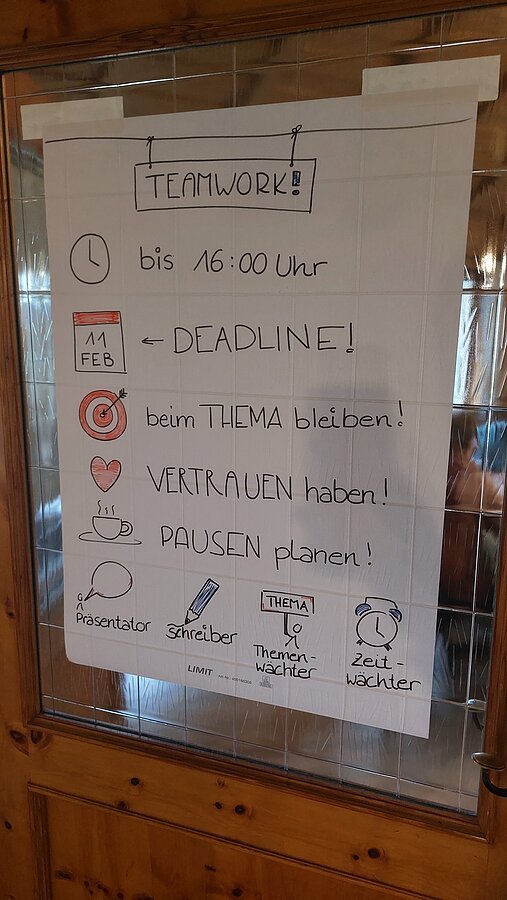 TEAMWORK!
bis 16:00 Uhr
11
FEB
← DEADLINE!
beim THEMA bleiben!
VERTRAUEN haben!
PAUSEN planen!
Präsentator
Schreiber
THEMA
Themen-
wächter
Zeit-
wächter
LIMIT